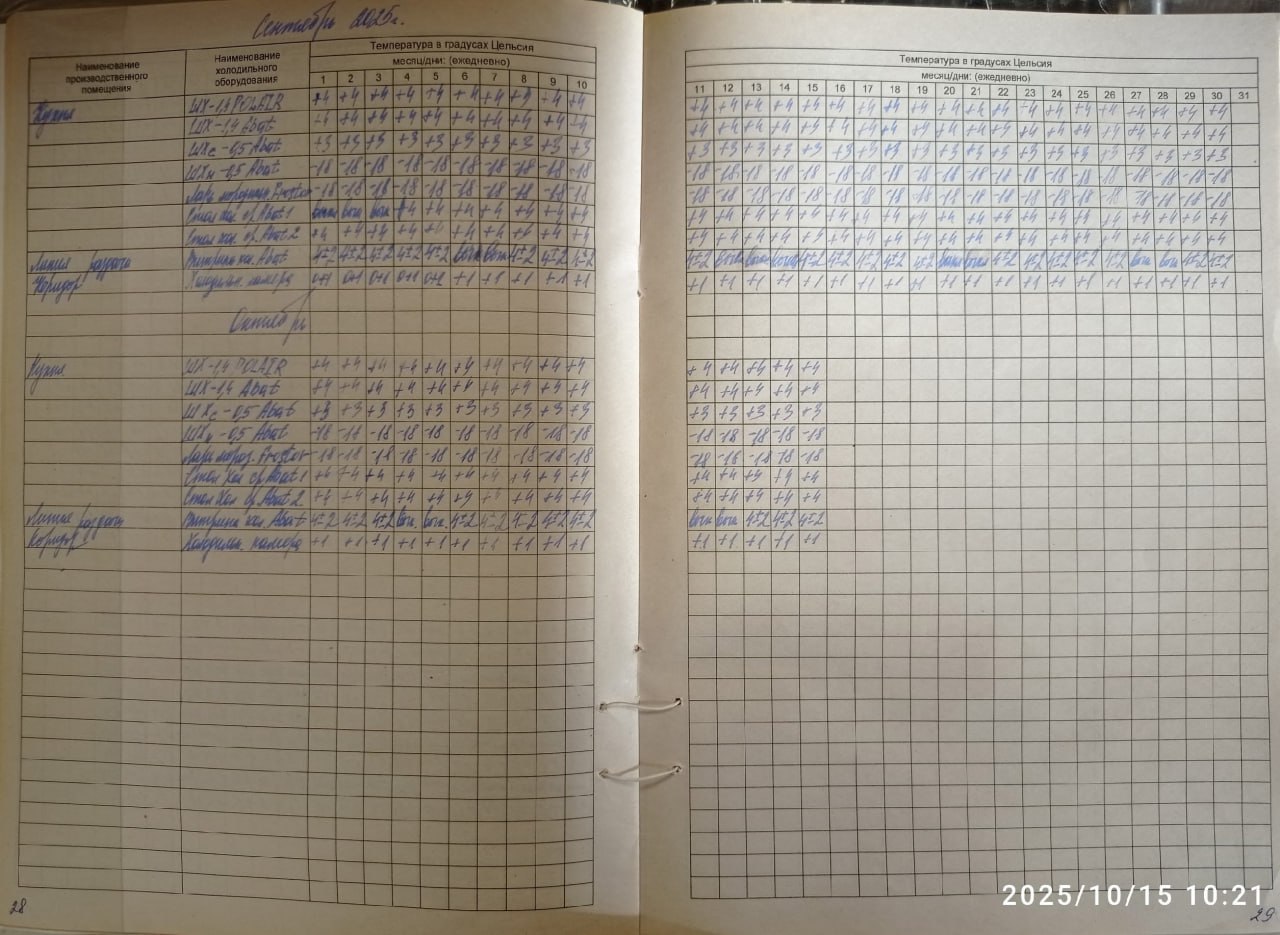 Сентябрь 2025г.
Наименование производственного помещения
Наименование холодильного оборудования
Температура в градусах Цельсия
месяц/дни: (ежедневно)
1 2 3 4 5 6 7 8 9 10
Температура в градусах Цельсия
месяц/дни: (ежедневно)
11 12 13 14 15 16 17 18 19 20 21 22 23 24 25 26 27 28 29 30 31
Кухня ШХ-1,4 POLAIR +4 +4 +4 +4 +4 +4 +4 +4 +4 +4 +4 +4 +4 +4 +4 +4 +4 +4 +4 +4 +4 +4 +4 +4 +4 +4 +4 +4 +4 +4
ШХ-1,4 Abat +4 +4 +4 +4 +4 +4 +4 +4 +4 +4 +4 +4 +4 +4 +4 +4 +4 +4 +4 +4 +4 +4 +4 +4 +4 +4 +4 +4 +4 +4
ШХс-0,5 Abat +3 +3 +3 +3 +3 +3 +3 +3 +3 +3 +3 +3 +3 +3 +3 +3 +3 +3 +3 +3 +3 +3 +3 +3 +3 +3 +3 +3 +3 +3
ШХн-0,5 Abat -18 -18 -18 -18 -18 -18 -18 -18 -18 -18 -18 -18 -18 -18 -18 -18 -18 -18 -18 -18 -18 -18 -18 -18 -18 -18 -18 -18 -18 -18
Ларь морозильн. Frostor -18 -18 -18 -18 -18 -18 -18 -18 -18 -18 -18 -18 -18 -18 -18 -18 -18 -18 -18 -18 -18 -18 -18 -18 -18 -18 -18 -18 -18 -18
Стол хол. ср. Abat 1 +4 +4 +4 +4 +4 +4 +4 +4 +4 +4 +4 +4 +4 +4 +4 +4 +4 +4 +4 +4 +4 +4 +4 +4 +4 +4 +4
Стол хол. ср. Abat 2 +4 +4 +4 +4 +4 +4 +4 +4 +4 +4 +4 +4 +4 +4 +4 +4 +4 +4 +4 +4 +4 +4 +4 +4 +4 +4 +4 +4 +4 +4
Линия раздачи Витрина хол. Abat 4±2 4±2 4±2 4±2 4±2 4±2 4±2 4±2 4±2 4±2 4±2 4±2 4±2 4±2 4±2 4±2 4±2 4±2 4±2 4±2 4±2
Коридор Холодильн. камера 0+1 0+1 0+1 0+1 0+1 +1 +1 +1 +1 +1 +1 +1 +1 +1 +1 +1 +1 +1 +1 +1 +1 +1 +1 +1 +1 +1 +1 +1 +1 +1
Октябрь
Кухня ШХ-1,4 POLAIR +4 +4 +4 +4 +4 +4 +4 +4 +4 +4 +4 +4 +4 +4 +4
ШХ-1,4 Abat +4 +4 +4 +4 +4 +4 +4 +4 +4 +4 +4 +4 +4 +4 +4
ШХс-0,5 Abat +3 +3 +3 +3 +3 +3 +3 +3 +3 +3 +3 +3 +3 +3 +3
ШХн-0,5 Abat -18 -18 -18 -18 -18 -18 -18 -18 -18 -18 -18 -18 -18 -18 -18
Ларь мороз. Frostor -18 -18 -18 -18 -18 -18 -18 -18 -18 -18 -18 -18 -18 -18 -18
Стол хол ср. Abat 1 +4 +4 +4 +4 +4 +4 +4 +4 +4 +4 +4 +4 +4 +4 +4
Стол хол ср. Abat 2 +4 +4 +4 +4 +4 +4 +4 +4 +4 +4 +4 +4 +4 +4 +4
Линия раздачи Витрина хол. Abat 4±2 4±2 4±2 4±2 4±2 4±2 4±2 4±2 4±2 4±2 4±2
Коридор Холодильн. камера +1 +1 +1 +1 +1 +1 +1 +1 +1 +1 +1 +1 +1 +1 +1
2025/10/15 10:21
28
29